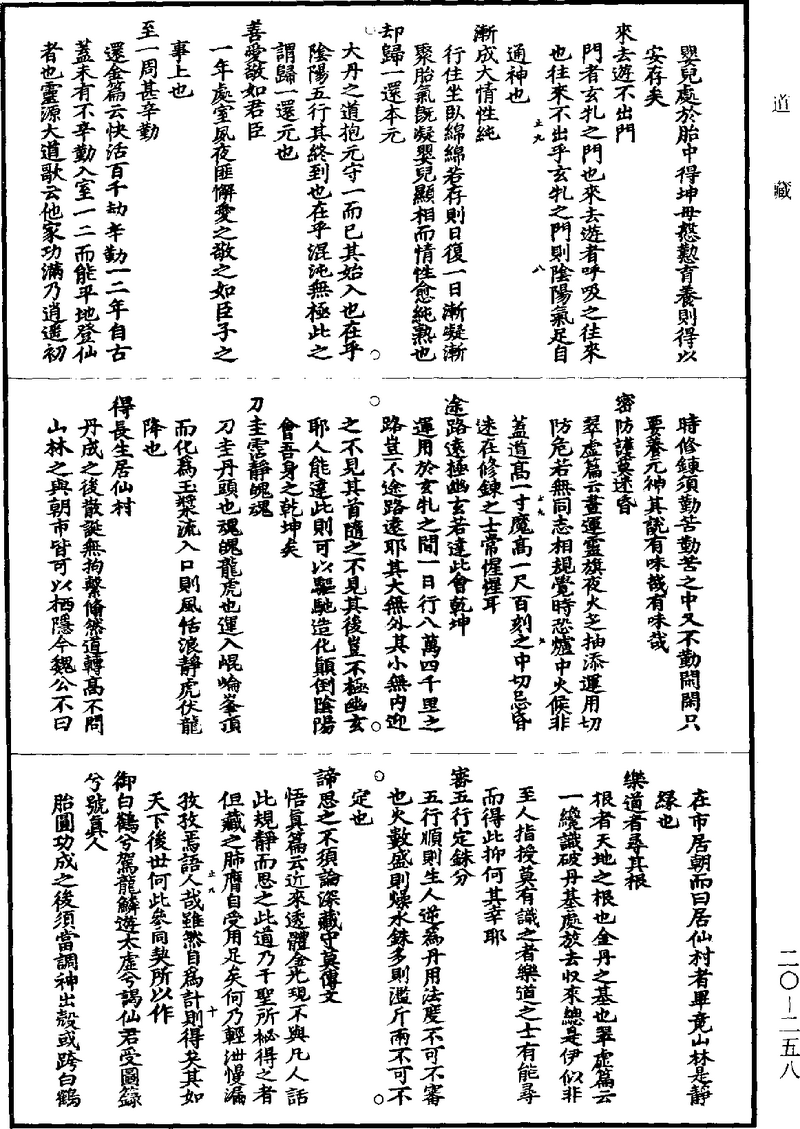 道藏
嬰兒處於胎中得坤母慇懃育養則得以
安存矣
來去遊不出門
門者玄牝之門也來去遊者呼吸之往來
也往來不出乎玄牝之門則陰陽氣足自
通神也
漸成大情性純
行住坐臥綿綿若存則日復一日漸凝漸
聚胎氣既凝嬰兒顯相而情性愈純熟也
却歸一還本元
大丹之道抱元守一而已其始入也在乎
陰陽五行其終到也在乎混沌無極此之
謂歸一還元也
善愛敬如君臣
一年處室夙夜匪懈愛之敬之如臣子之
事上也
至一周甚辛勤
還金篇云快活百千劫辛勤一二年自古
蓋未有不辛勤入室一二而能平地登仙
者也靈源大道歌云他家功滿乃逍遥初
時修鍊須勤苦勤苦之中又不勤閑閑只
要養元神其說有味哉有味哉
密防護莫迷昏
翠虛篇云晝運靈旗夜火芝抽添運用切
防危若無同志相規覺時恐爐中火候非
蓋道高一寸魔高一尺百刻之中切忌昏
迷在修鍊之士常惺惺耳
途路遠極幽玄若達此會乾坤
運用於玄牝之間一日行八萬四千里之
路豈不途路遠耶其大無外其小無内迎
之不見其首隨之不見其後豈不極幽玄
耶人能達此則可以驅馳造化顛倒陰陽
會吾身之乾坤矣
刀圭霑靜魄魂
刀圭丹頭也魂魄龍虎也運入崐崘峯頂
而化爲玉漿流入口則風恬浪靜虎伏龍
降也
得長生居仙村
丹成之後散誕無拘繫翛然道轉高不問
山林之與朝市皆可以栖隱今魏公不曰
在市居朝而曰居仙村者畢竟山林是靜
緣也
樂道者尋其根
根者天地之根也金丹之基也翠虛篇云
一纔識破丹基處放去收來總是伊似非
至人指授莫有識之者樂道之士有能尋
而得此抑何其幸耶
審五行定銖分
五行順則生人逆爲丹用法度不可不審
也火數盛則燥水銖多則濫斤兩不可不
定也
諦思之不須論深藏守莫傳文
悟真篇云近來透體金光現不與凡人話
此規靜而思之此道乃千聖所祕得之者
但藏之肺膺自受用足矣何乃輕泄慢漏
孜孜焉語人哉雖然自爲計則得矣其如
天下後世何此參同契所以作
御白鶴兮駕龍鱗遊太虛兮謁仙君受圖籙
兮號真人
胎圓功成之後須當調神出殼或跨白鶴
二〇—二五八